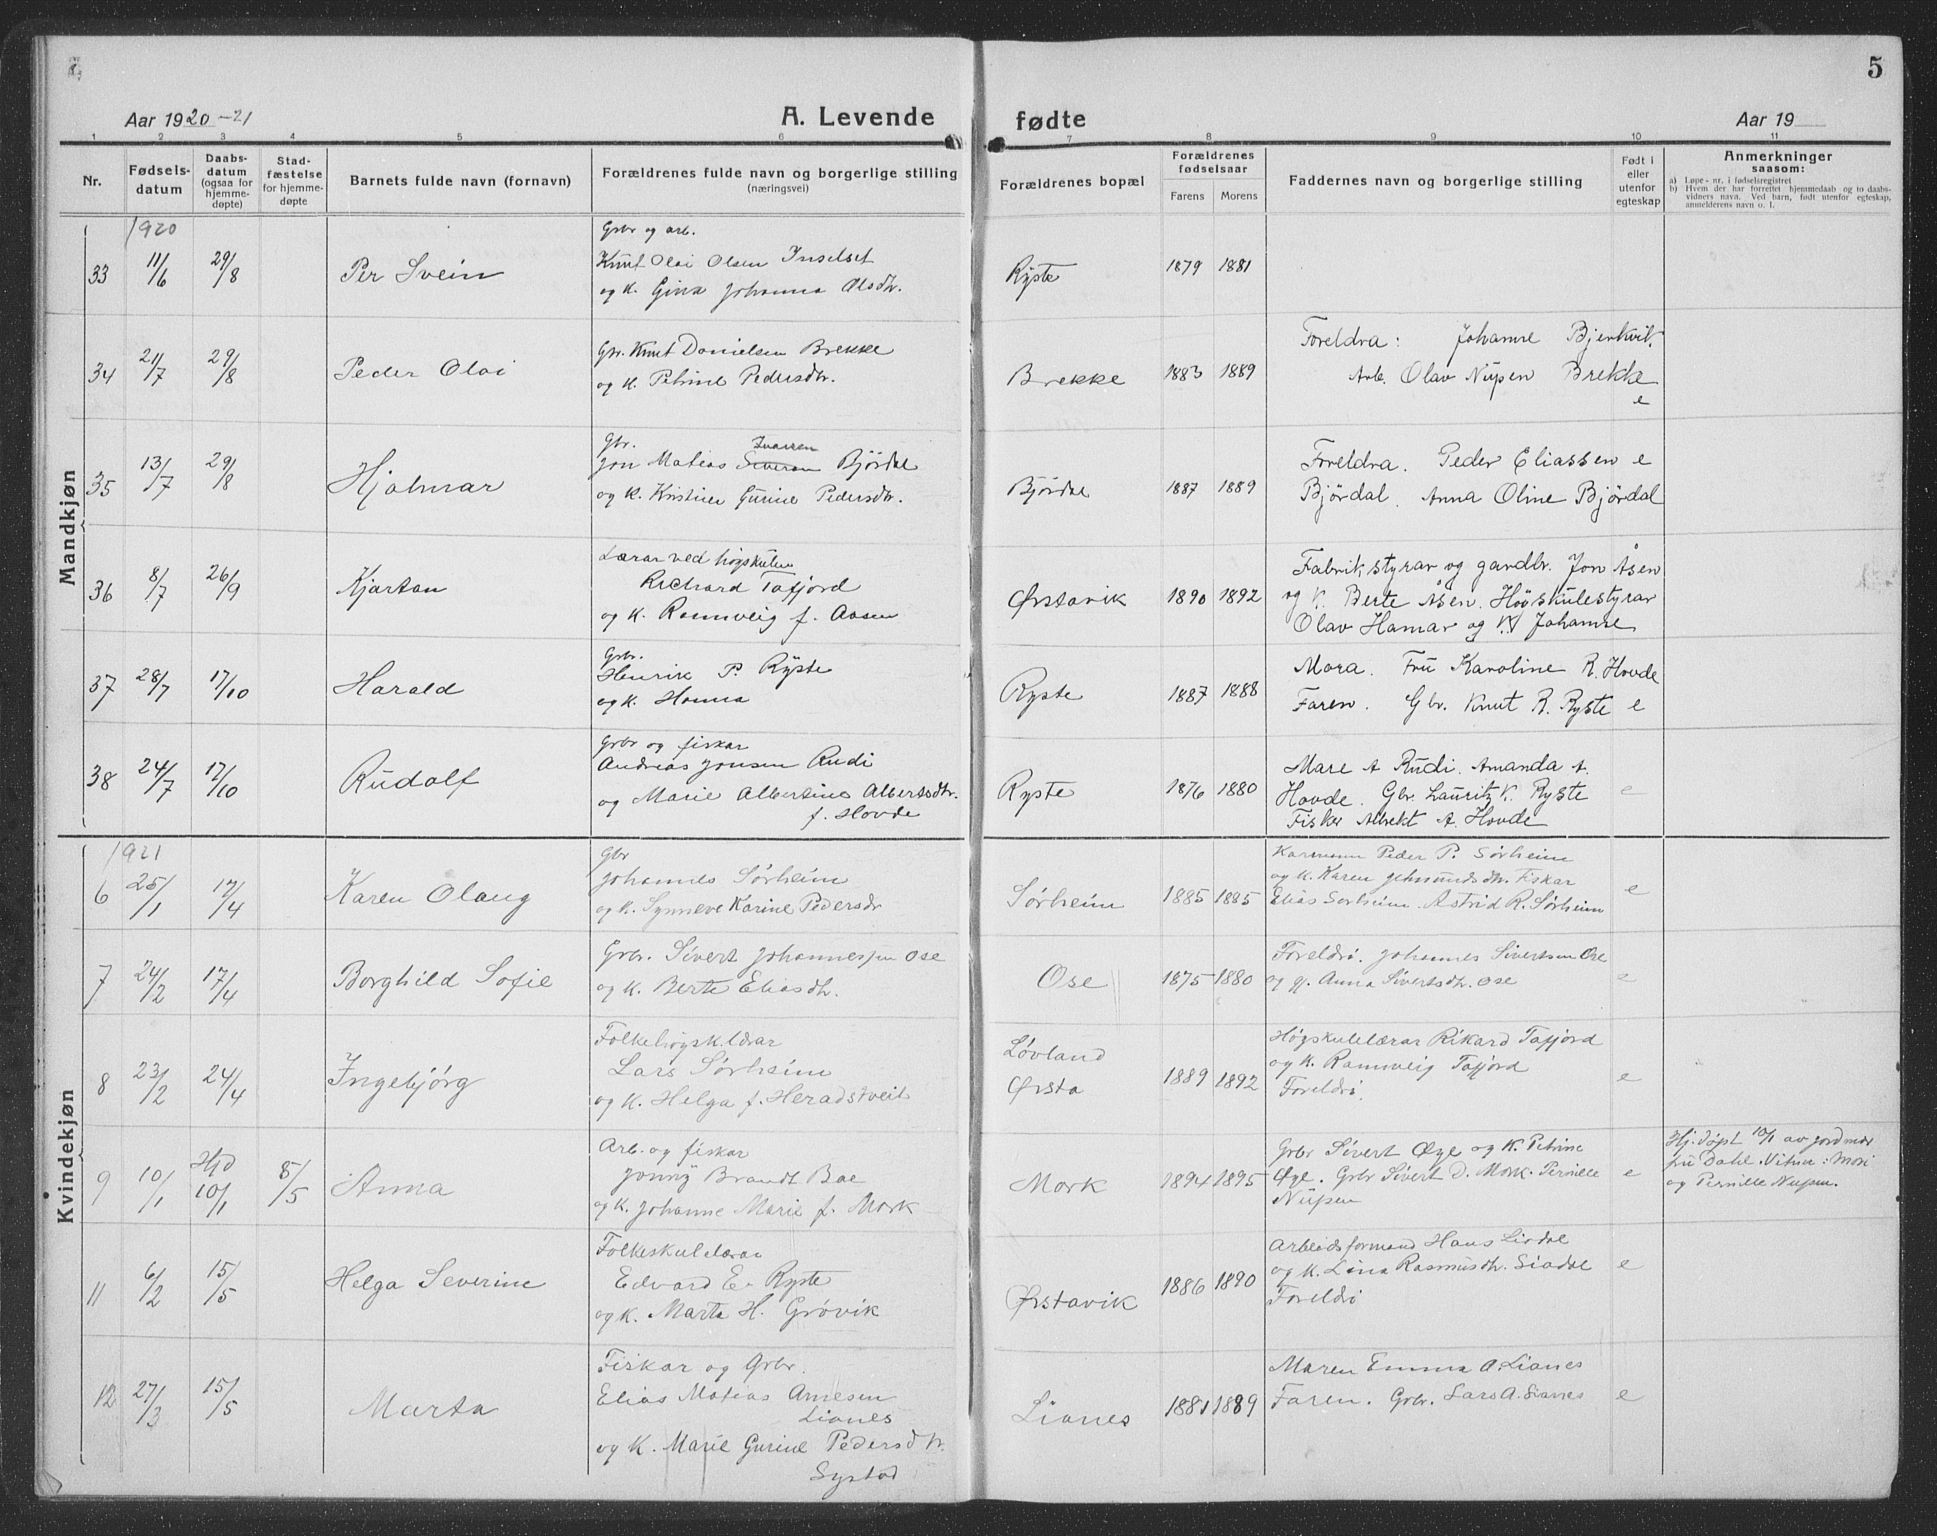 5
Aar 1920-21
A. Levende fødte
Aar 19
1 2 3 4 5 6 7 8 9 10 11
Nr.
Fødsels-
datum
Daabs-
datum
(ogsaa for
hjemme-
døpte)
Stad-
fæstelse
for hjemme-
døpte
Barnets fulde navn (fornavn)
Forældrenes fulde navn og borgerlige stilling
(næringsvei)
Forældrenes bopæl
Forældrenes
fødselsaar
Farens Morens
Faddernes navn og borgerlige stilling
Født i
eller
utenfor
egteskap
Anmerkninger
saasom:
a) Løpe-nr. i fødselsregistret
b) Hvem der har forrettet hjemmedaab og to daabs-
vidners navn. Ved barn, født utenfor egteskap,
anmelderens navn o. l.
Mandkjøn
1920
33 11/6 29/8 Per Svein
Grbr og arb.
Knut Olai Olsen Inselset
og k. Gina Johanna Olsdtr.
Ryste 1879 1881
34 21/7 29/8 Peder Olai
Gbr. Knut Danielsen Brekke
og k. Petrine Pedersdtr.
Brekke 1883 1889
Foreldra: Johanne Bjerkvik.
Arb. Olav Nupen Brekke
e
35 13/7 29/8 Hjalmar
Gbr. Ivarsen
Jon Matias Siversen Bjørdal
og k. Kristine Gurine Pedersdtr.
Bjørdal 1887 1889
Foreldra. Peder Eliassen e
Bjørdal. Anna Oline Bjørdal
36 8/7 26/9 Kjartan
Lærar ved høgskulen
Richard Tafjord
og k. Rannveig f. Aasen
Ørstavik 1890 1892
Fabrikstyrar og gardbr. Jon Åsen
og k. Berte Åsen. Høgskulestyrar
Olav Hamar og k. Johanne
37 28/7 17/10 Harald
Grbr.
Henrik P. Ryste
og k. Hanna
Ryste 1887 1888
Mora. Fru Karoline R. Hovde
Faren. Gbr. Knut R. Ryste e
38 24/7 17/10 Rudolf
Grbr og fiskar
Andreas Jonsen Rudi
og Marie Albertine Albertsdtr.
f. Hovde
Ryste 1876 1880
Mare A Rudi. Amanda A.
Hovde. Gbr. Lauritz K. Ryste e
Fisker Albrekt A. Hovde
Kvindekjøn
1921
6 25/1 17/4 Karen Olaug
Gbr
Johannes Sørheim
og k. Synneve Karine Pedersdr
Sørheim 1885 1885
Peder P. Sørheim
og k. Karen Fiskar
Elias Sørheim. Astrid R. Sørheim e
7 24/2 17/4 Borghild Sofie
Grbr. Sivert Johannessen Ose
og k. Berte Eliasdtr.
Ose 1875 1880
Foreldri. Johannes Sivertsen Ose
og gj. Anna Sivertsdtr. Ose e
8 23/2 24/4 Ingebjørg
Folkehøgsk.lærar
Lars Sørheim
og k. Helga f. Heradstveit
Løvland
Ørsta 1889 1892
Høgskulelærar Rikard Tafjord
og k. Rannveig Tafjord
Foreldri. e
9 10/1 Hjd 10/1 8/5 Anna
Arb. og fiskar
Jonny Brandt Boe
og k. Johanne Marie f. Mork
Mork 1894 1895
Grbr Sivert Øye og k. Petrine
Øye. Grbr Sivert D. Mork. Pernille e
Nupen
Hj.døpt 10/1 av jordmor
fru Dahl Vitne: Mori
og Pernille Nupen.
11 6/2 15/5 Helga Severine
Folkeskulelærar
Edvard E. Ryste
og k. Marta H. Grøvik
Ørstavik 1886 1890
Arbeidsformand Hans Lisdal
og k. Lina Rasmusdtr. e
Foreldri
12 27/3 15/5 Marta
Fiskar og Grbr.
Elias Matias Arnesen
Lianes
og k. Marie Gurine Pedersdtr.
Systad
Lianes 1881 1889
Maren Emma A. Lianes
Faren. Grbr. Lars A. Lianes e